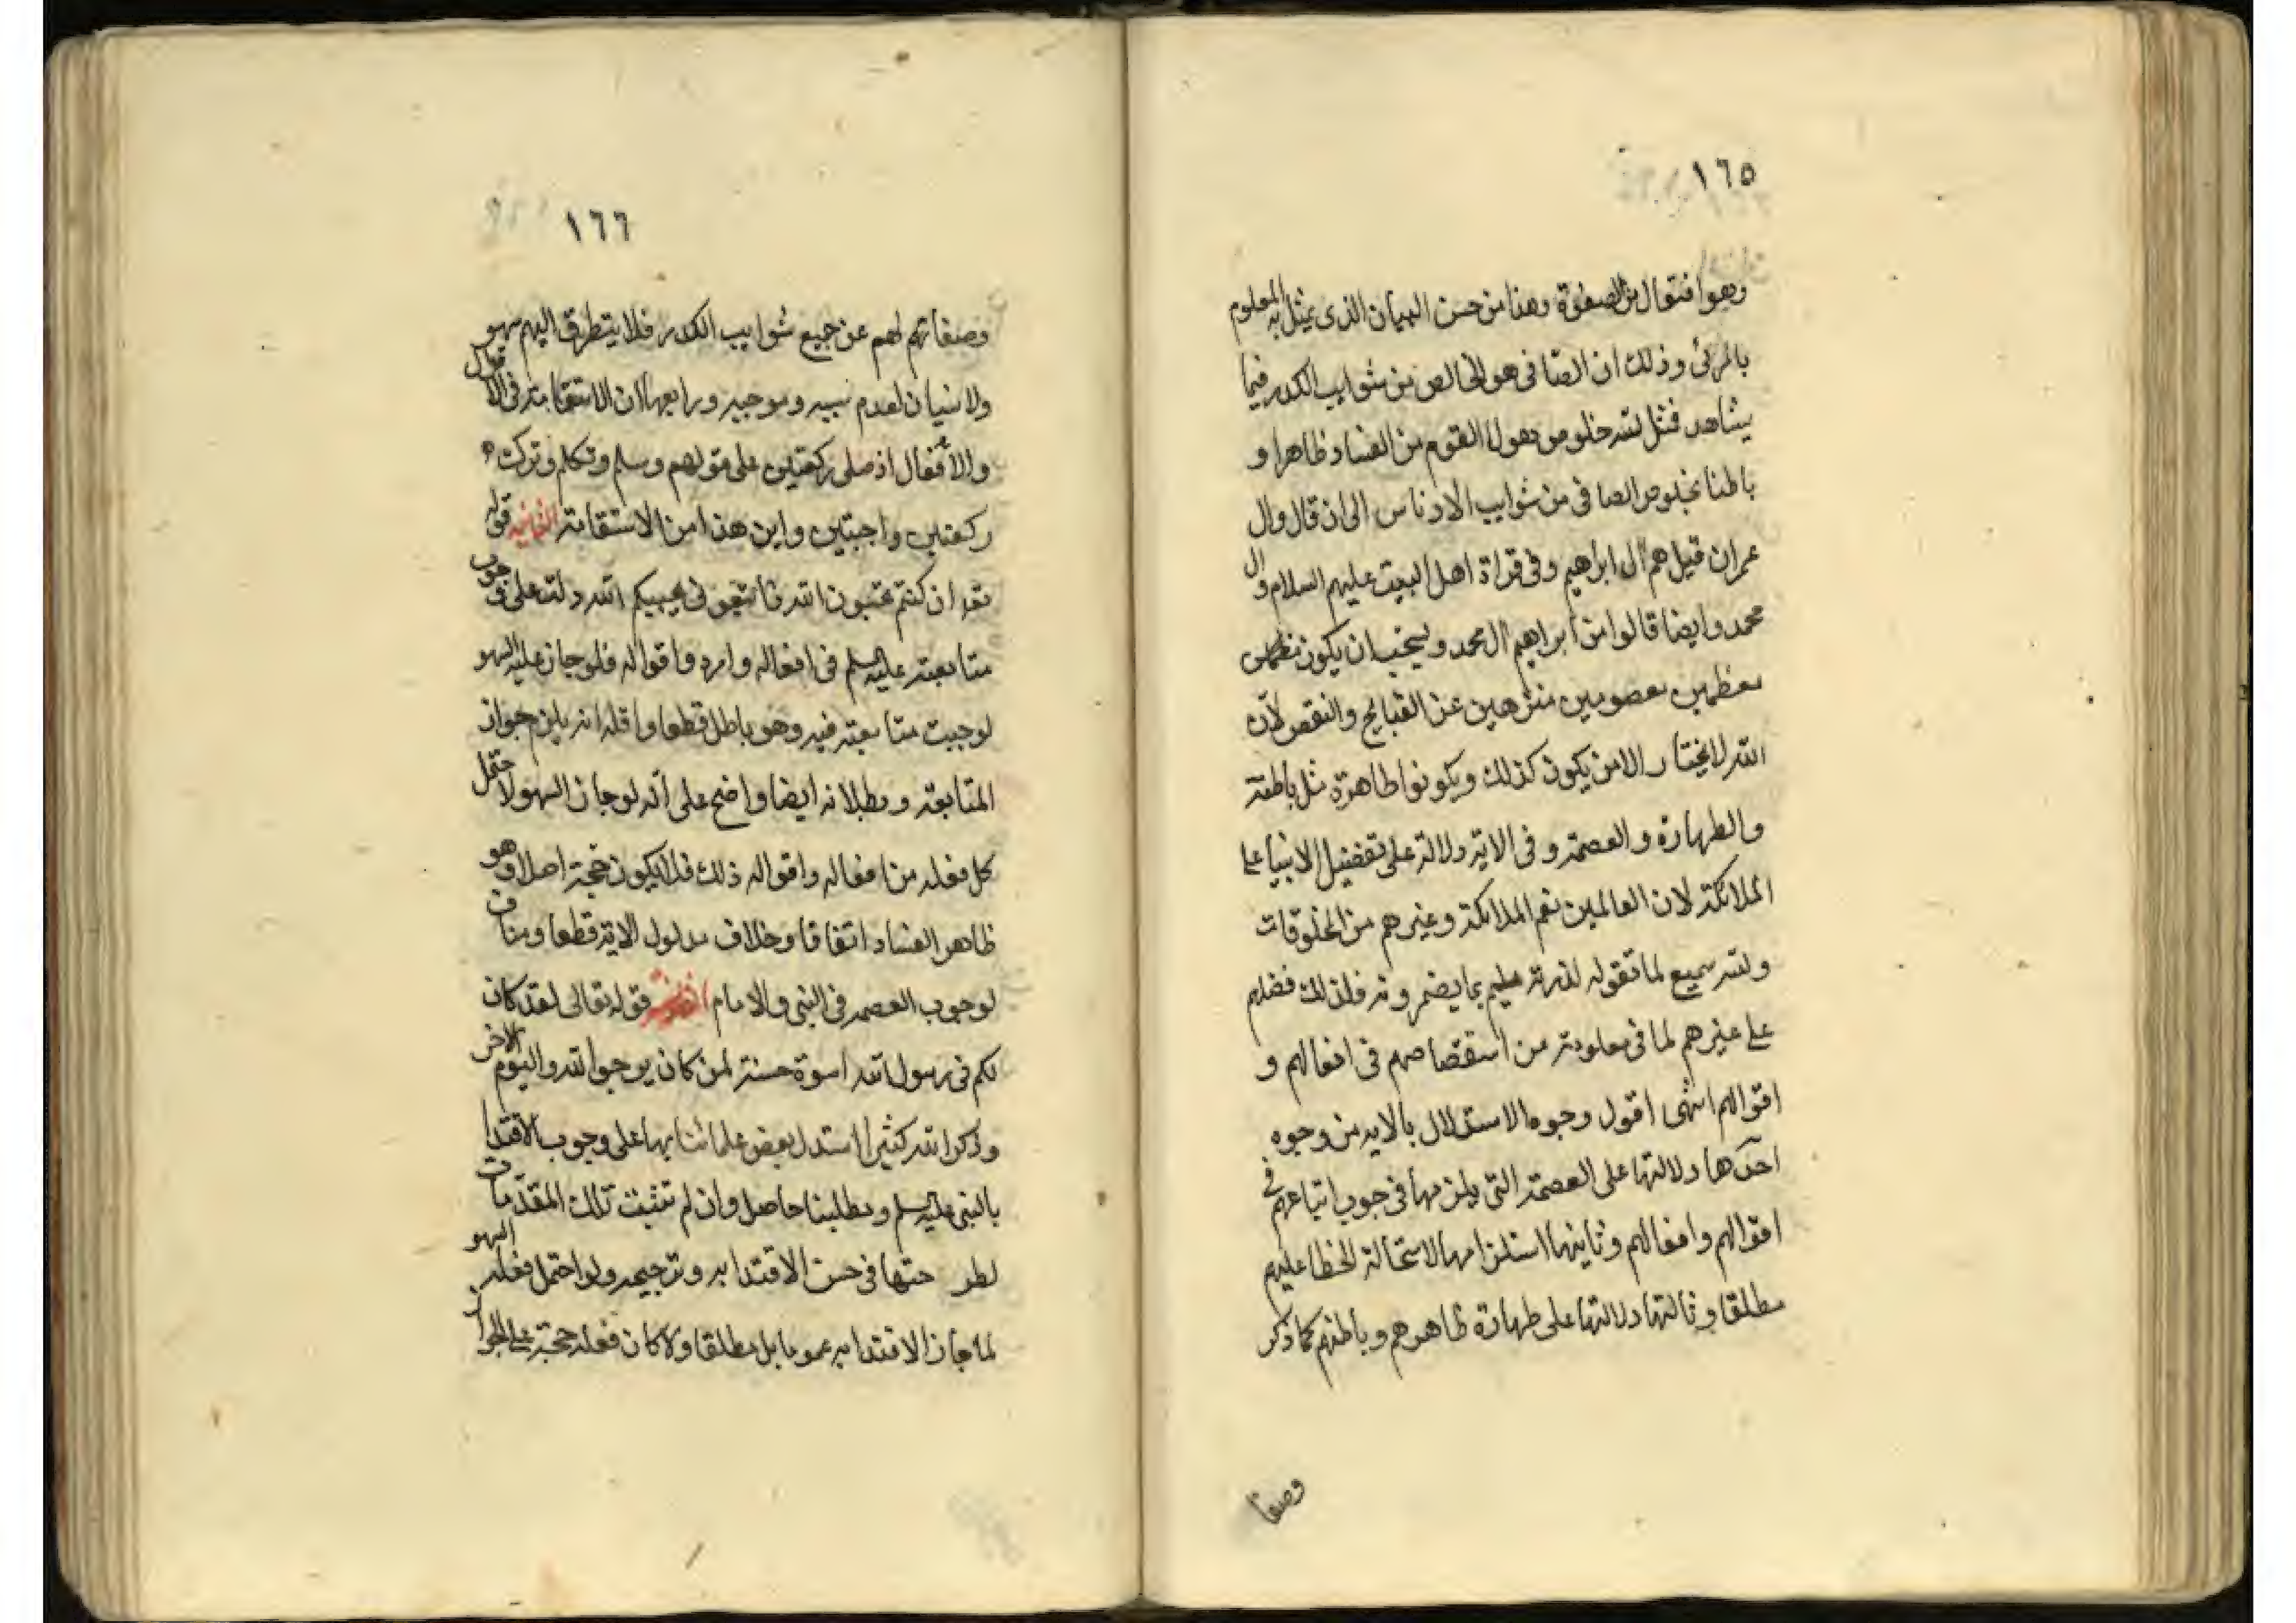 ١٦٥
وهو افتعال من الصفوة وهذا من حسن البيان الذى يمثل به المعلوم
بالمرئى وذلك ان الصافى هو الخالص من شوايب الكدر فيما
يشاهد فمثل الله خلوص هولا القوم من الفساد ظاهرا و
باطنا بخلوص الصافى من شوايب الادناس الى ان قال وال
عمران قيل هم ال ابراهيم وفى قراة اهل البيت عليهم السلام وال
محمد وايضا قالوا من ابراهيم ال محمد ويجب ان يكون
معظمين معصومين منزهين عن القبايح والنقص لان
الله لا يختار الا من يكون كذلك ويكونوا طاهرة مثل باطنه
والطهارة والعصمة وفى الاية دلالة على تفضيل الانبيا على
الملائكة لان العالمين نعم الملائكة وغيرهم من المخلوقات
والله سميع لما تقوله الذرية عليم بما يضمرونه فلذلك فضلهم
على غيرهم لما فى معلومه من استقصاصهم فى افعالهم و
اقوالهم انتهى اقول وجوه الاستدلال بالايه من وجوه
احدها دلالتها على العصمة التى يلزمها فى جوب اتباعهم فى
اقوالهم وافعالهم وثانيها استلزامها لاستحالة الخطا عليهم
مطلقا وثالثها دلالتها على طهارة ظاهرهم وباطنهم كما ذكر
وصفا
١٦٦
وصفاتهم لهم عن جميع شوايب الكدر فلا يتطرق اليهم سهو
ولا نسيان لعدم سببه وموجبه ورابعها ان الاستقامة فى الاقوال
والافعال اذ صلى ركعتين على قولهم وسلم وتكلم وترك
ركعتين واجبتين واين هذا من الاستقامة الثانيه قوله
تعه ان كنتم تحبون الله فاتبعونى يحببكم الله دلت على وجوب
متابعته عليه السلم فى افعاله وامره واقواله فلو جاز عليه السهو
لوجبت متابعته فيه وهو باطل قطعا واقله انه يلزم جواز
المتابعة وبطلانه ايضا واضح على انه لو جاز السهو لاحتمل
كل فعله من افعاله واقواله ذلك فلا يكون حجة اصلا وهو
ظاهر الفساد اتفاقا وخلاف مدلول الاية قطعا ومناف
لوجوب العصمه فى النبى والامام قوله تعالى لقد كان
لكم فى رسول الله اسوة حسنة لمن كان يرجوا الله واليوم الاخر
وذكر الله كثيرا استدل بعض علمائنا بها على وجوب الاقتدا
بالنبى عليه السلم ومطلبنا حاصل وان لم تثبت تلك المقدمات
حتها فى حسن الاقتدا به وترجيحه ولو احتمل فعله السهو
لما جاز الاقتدا به عموما بل مطلقا ولا كان فعله حجة على الجواز